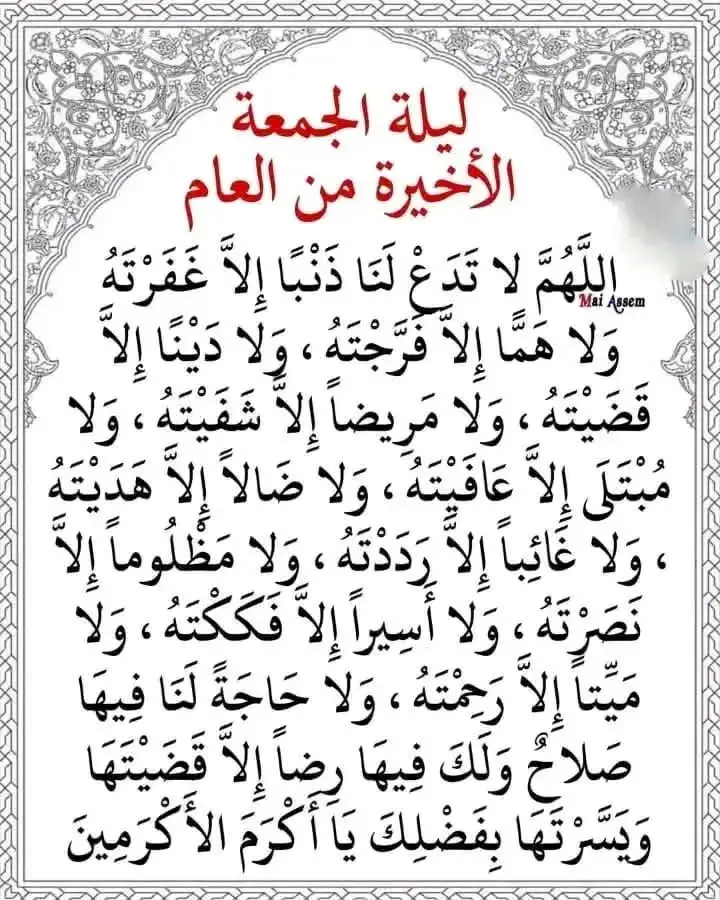 ليلة الجمعة
الأخيرة من العام
اللَّهُمَّ لا تَدَعْ لَنَا ذَنْبًا إِلاَّ غَفَرْتَهُ
Mai Assem
وَلا هَمًّا إِلاَّ فَرَّجْتَهُ ، وَلا دَيْنًا إِلاَّ
قَضَيْتَهُ ، وَلا مَرِيضاً إِلاَّ شَفَيْتَهُ ، وَلا
مُبْتَلَى إِلاَّ عَافَيْتَهُ ، وَلا ضَالاً إِلاَّ هَدَيْتَهُ
، وَلا غَائِباً إِلاَّ رَدَدْتَهُ ، وَلا مَظْلُوماً إِلاَّ
نَصَرْتَهُ ، وَلا أَسِيراً إِلاَّ فَكَكْتَهُ ، وَلا
مَيِّتاً إِلاَّ رَحِمْتَهُ ، وَلا حَاجَةً لَنَا فِيهَا
صَلاحٌ وَلَكَ فِيهَا رِضاً إِلاَّ قَضَيْتَهَا
وَيَسَّرْتَهَا بِفَضْلِكَ يَا أَكْرَمَ الأَكْرَمِينَ